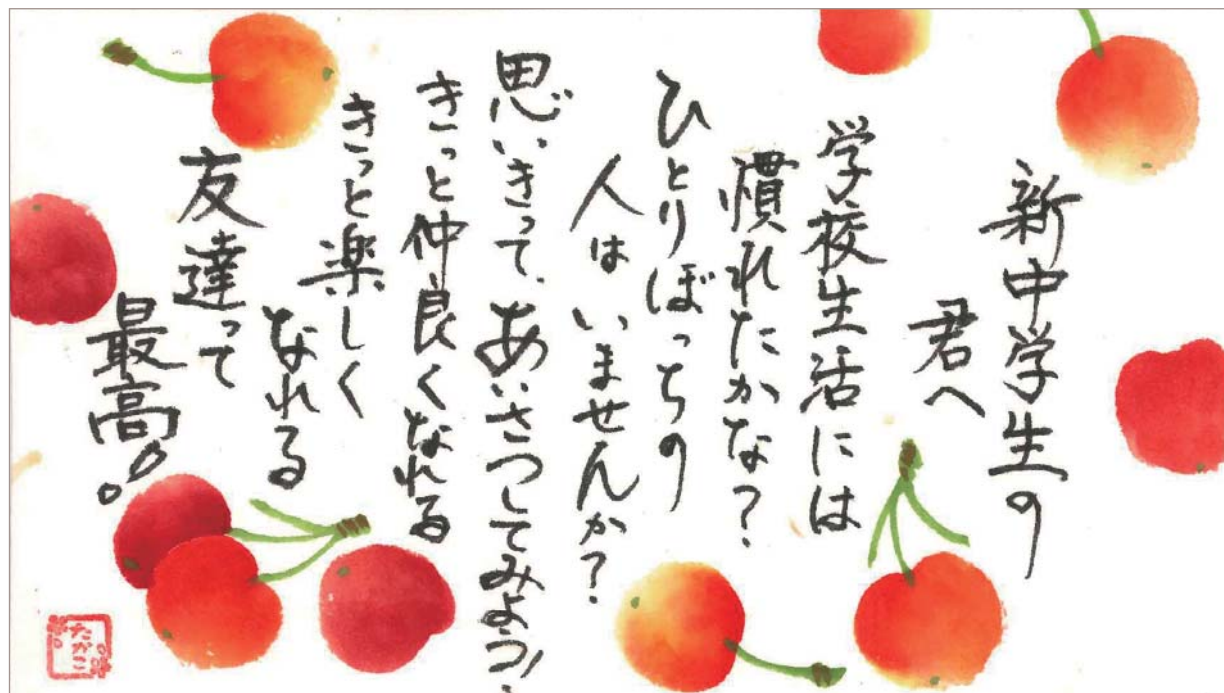 新中学生の
君へ
学校生活には
慣れたかな？
ひとりぼっちの
人はいませんか？
思いきって、あいさつしてみよう！
きっと仲良くなれる
きっと楽しく
なれる
友達って
最高！
たがこ